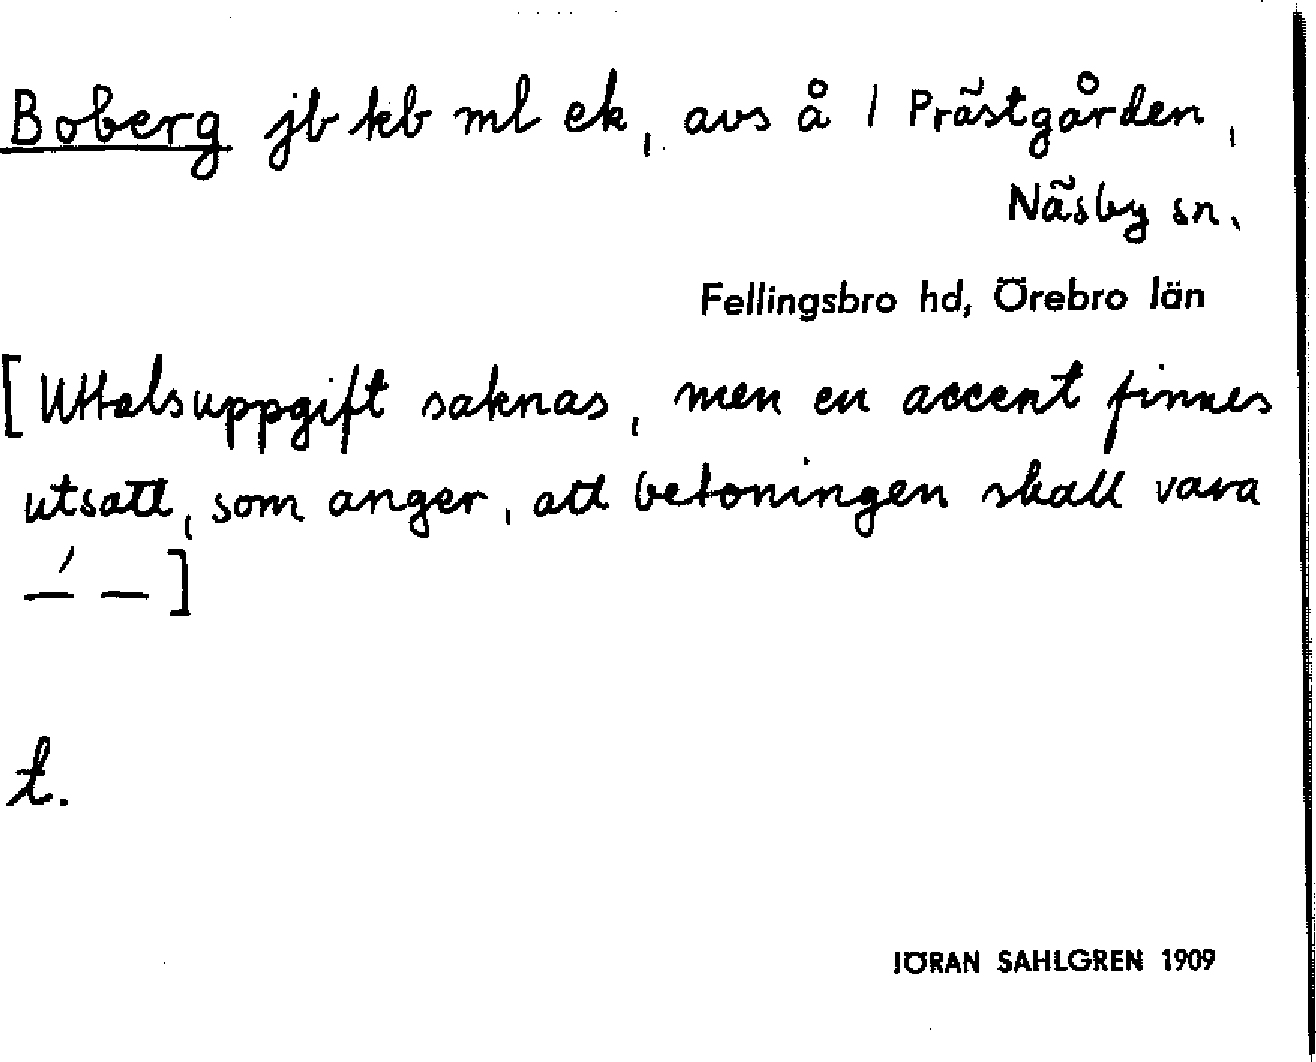 Boberg jb kb ml ek, avs å 1 Prästgården,
Näsby sn.
Fellingsbro hd, Örebro län
[Uttalsuppgift saknas, men en accent finnes
utsatt, som anger, att betoningen skall vara
—́ —]
t.
JÖRAN SAHLGREN 1909